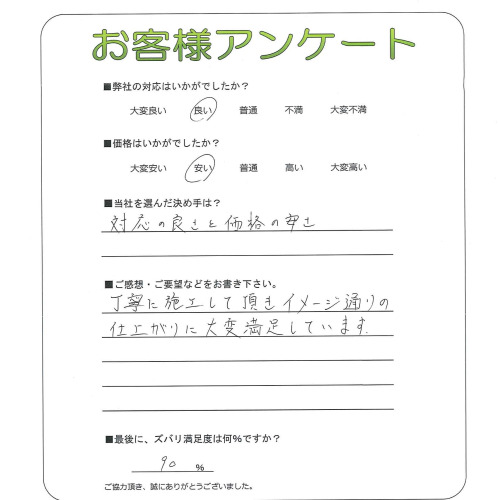 お客様アンケート
■弊社の対応はいかがでしたか?
大変良い 良い 普通 不満 大変不満
■価格はいかがでしたか?
大変安い 安い 普通 高い 大変高い
■当社を選んだ決め手は?
対応の良さと価格の安さ
■ご感想・ご要望などをお書き下さい。
丁寧に施工して頂きイメージ通りの
仕上がりに大変満足しています.
■最後に、ズバリ満足度は何%ですか?
90 %
ご協力頂き、誠にありがとうございました。